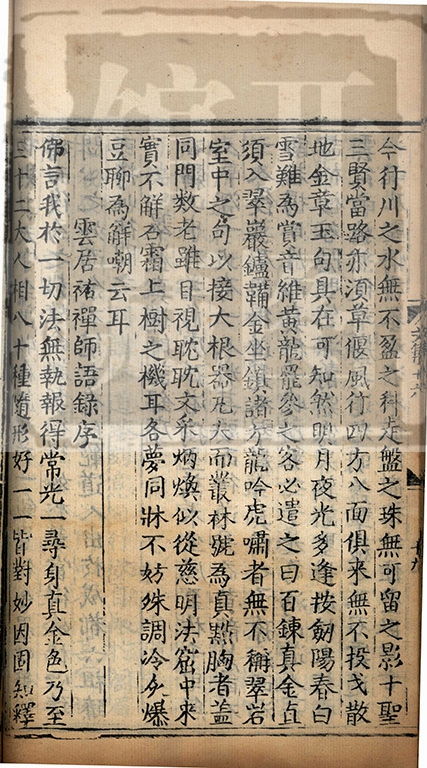 今行川之水無不盈之科走盤之珠無可留之影十聖
三賢當路亦須草偃風行四方八面俱來無不投戈散
地金章玉句具在可知然明月夜光多逢按劒陽春白
雪難為賞音維黃龍罷參之客必遣之曰百鍊真金直
須入翠巖鑪鞴金坐鎮諸方龍吟虎嘯者無不稱翠岩
室中之句以接大根器凡夫而叢林號為真點胸者蓋
同門數老雖目視眈眈文采炳煥似從慈明法窟中來
實不解吞霜上樹之機耳各夢同牀不妨殊調冷灰爆
豆聊為解嘲云耳
雲居祐禪師語錄序
佛言我於一切法無執報得常光一尋身真金色乃至
三十二大人相八十種隨形好一一皆對妙因固知釋